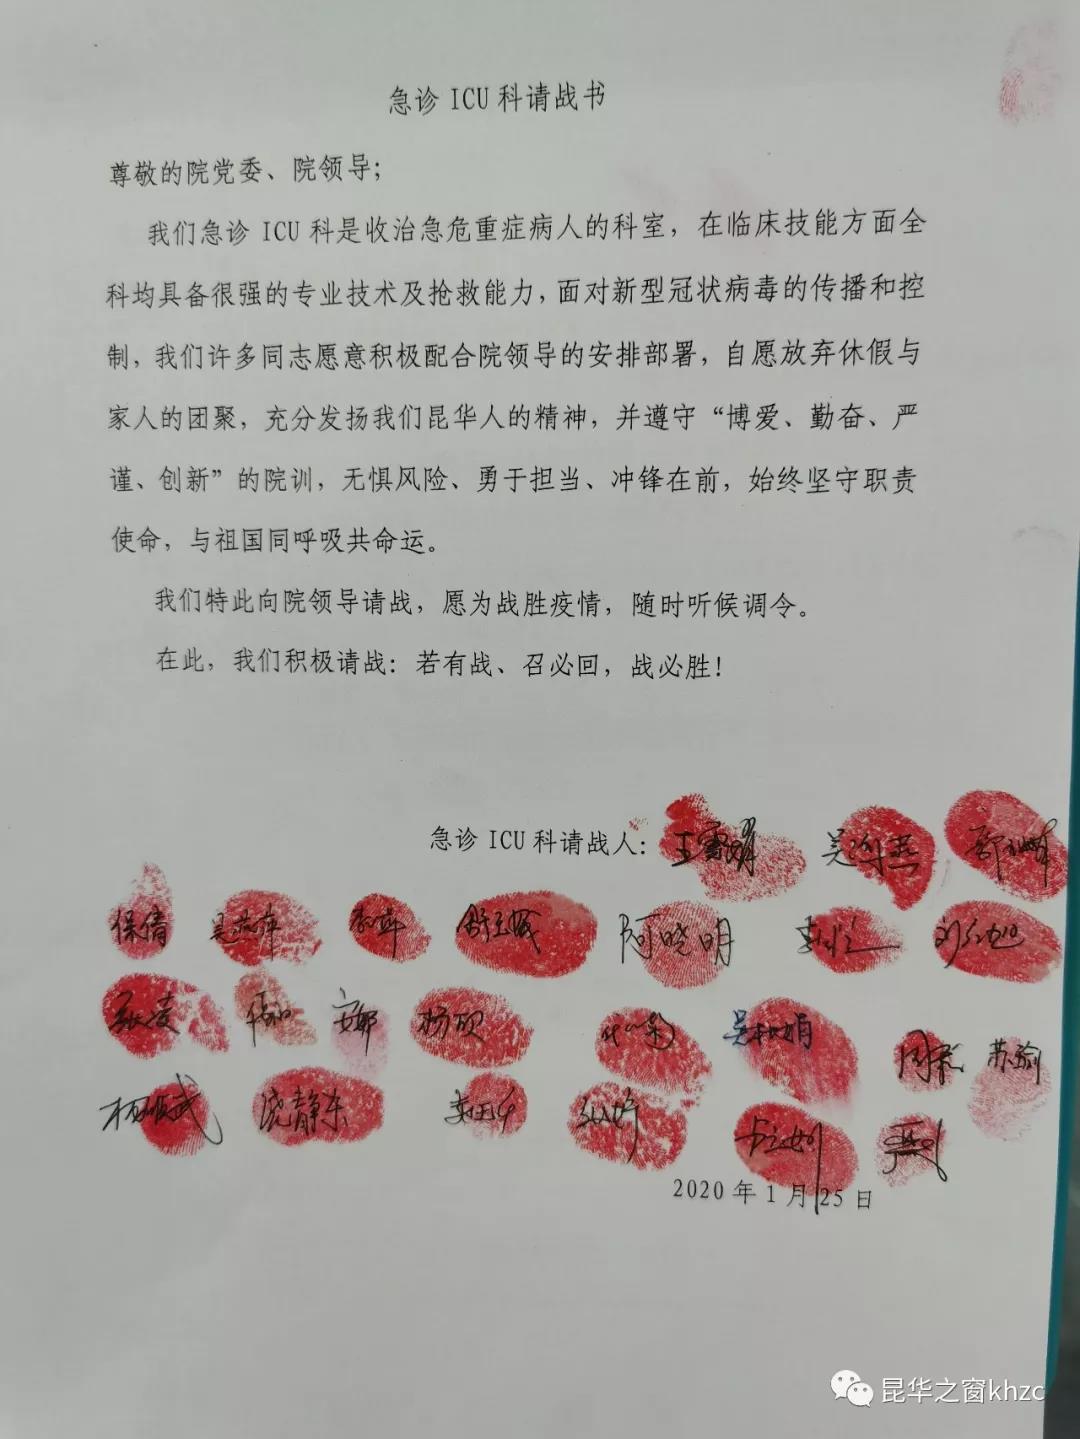 急诊 ICU 科请战书
尊敬的院党委、院领导；
我们急诊 ICU 科是收治急危重症病人的科室，在临床技能方面全
科均具备很强的专业技术及抢救能力，面对新型冠状病毒的传播和控
制，我们许多同志愿意积极配合院领导的安排部署，自愿放弃休假与
家人的团聚，充分发扬我们昆华人的精神，并遵守“博爱、勤奋、严
谨、创新”的院训，无惧风险、勇于担当、冲锋在前，始终坚守职责
使命，与祖国同呼吸共命运。
我们特此向院领导请战，愿为战胜疫情，随时听候调令。
在此，我们积极请战：若有战、召必回，战必胜！
急诊 ICU 科请战人：王雪娟
保倩 阿晓明
安娜 杨硕 周彩 苏瑜
2020 年 1 月 25 日
昆华之窗khzc